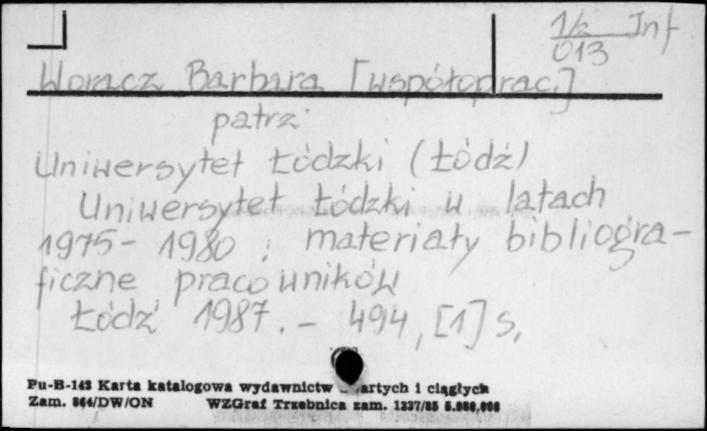 1/2 Inf
013
Woracz Barbara [współoprac.]
patrz
Uniwersytet Łódzki (Łódź)
Uniwersytet Łódzki w latach
1975-1980 : materiały bibliogra-
ficzne pracowników
Łódź 1987. - 494, [1] s.
Pu-B-143 Karta katalogowa wydawnictw artych i ciągłych
Zam. 864/DW/ON WZGraf Trzebnica zam. 1227/85